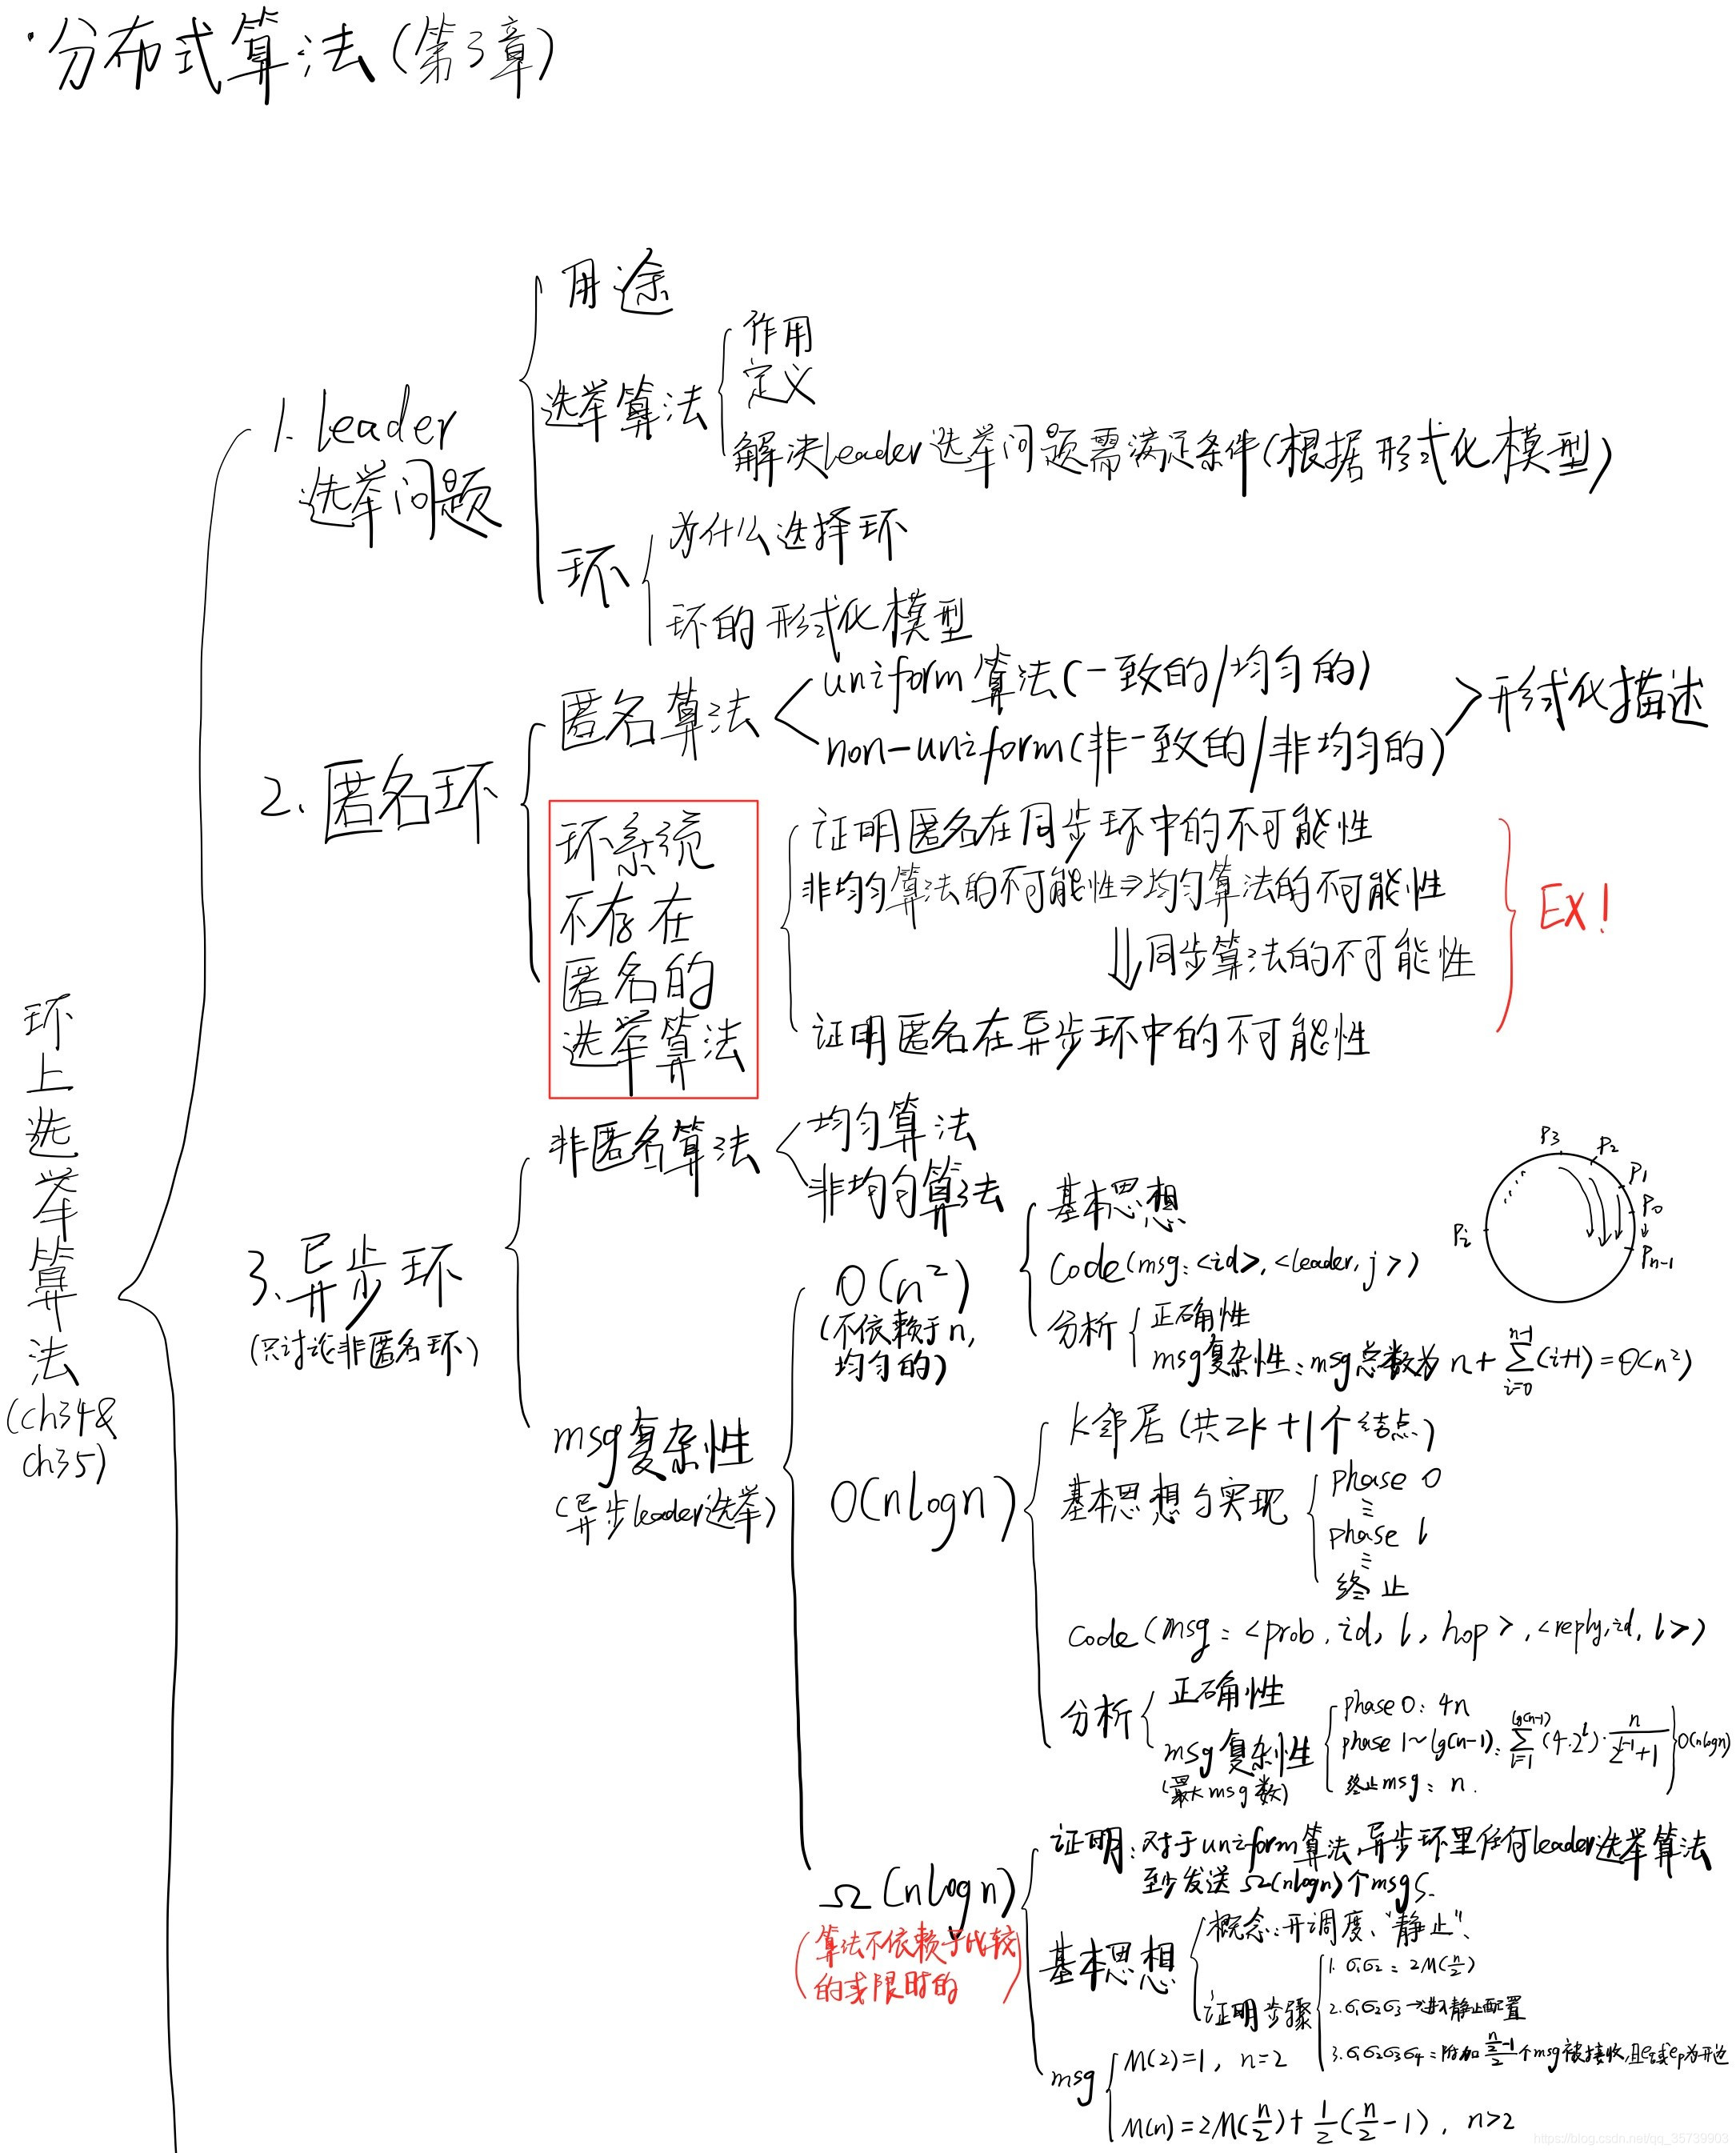 ·分布式算法(第3章)
环上选举算法
(ch34&
ch35)
1. leader
选举问题
用途
选举算法
作用
定义
解决leader选举问题需满足条件(根据形式化模型)
环
为什么选择环
环的形式化模型
2. 匿名环
匿名算法
uniform算法(一致的/均匀的)
non-uniform(非一致的/非均匀的)
形式化描述
环系统
不存在
匿名的
选举算法
证明匿名在同步环中的不可能性
非均匀算法的不可能性⇒均匀算法的不可能性
⇓同步算法的不可能性
证明匿名在异步环中的不可能性
EX!
3. 异步环
(只讨论非匿名环)
非匿名算法
均匀算法
非均匀算法
msg复杂性
(异步leader选举)
O(n²)
(不依赖于n,
均匀的)
基本思想
Code(msg: <id>, <leader, j>)
分析
正确性
msg复杂性: msg总数为 n+∑_{i=0}^{n-1}(i+1)=O(n²)
P3
P2
P1
P0
Pn-1
Pi
O(nlogn)
k邻居(共2k+1个结点)
基本思想与实现
phase 0
phase l
终止
code(msg: <prob, id, l, hop>, <reply, id, l>)
分析
正确性
msg复杂性
(最大msg数)
phase 0: 4n
phase 1~lg(n-1): ∑_{l=1}^{lg(n-1)}(4·2^l)·n/(2^{l-1}+1)
终止msg: n.
O(nlogn)
Ω(nlogn)
(算法不依赖于比较
的或限时的)
证明: 对于uniform算法,异步环里任何leader选举算法
至少发送Ω(nlogn)个msgs.
基本思想
概念: 开调度、"静止"、
证明步骤
1. σ1σ2: 2M(n/2)
2. σ1σ2σ3→进入静止配置
3. σ1σ2σ3σ4: 附加 (n/2-1)/2 个msg被接收,且eq或ep为开边
msg
M(2)=1, n=2
M(n)=2M(n/2)+1/2(n/2-1), n>2
https://blog.csdn.net/qq_35739903